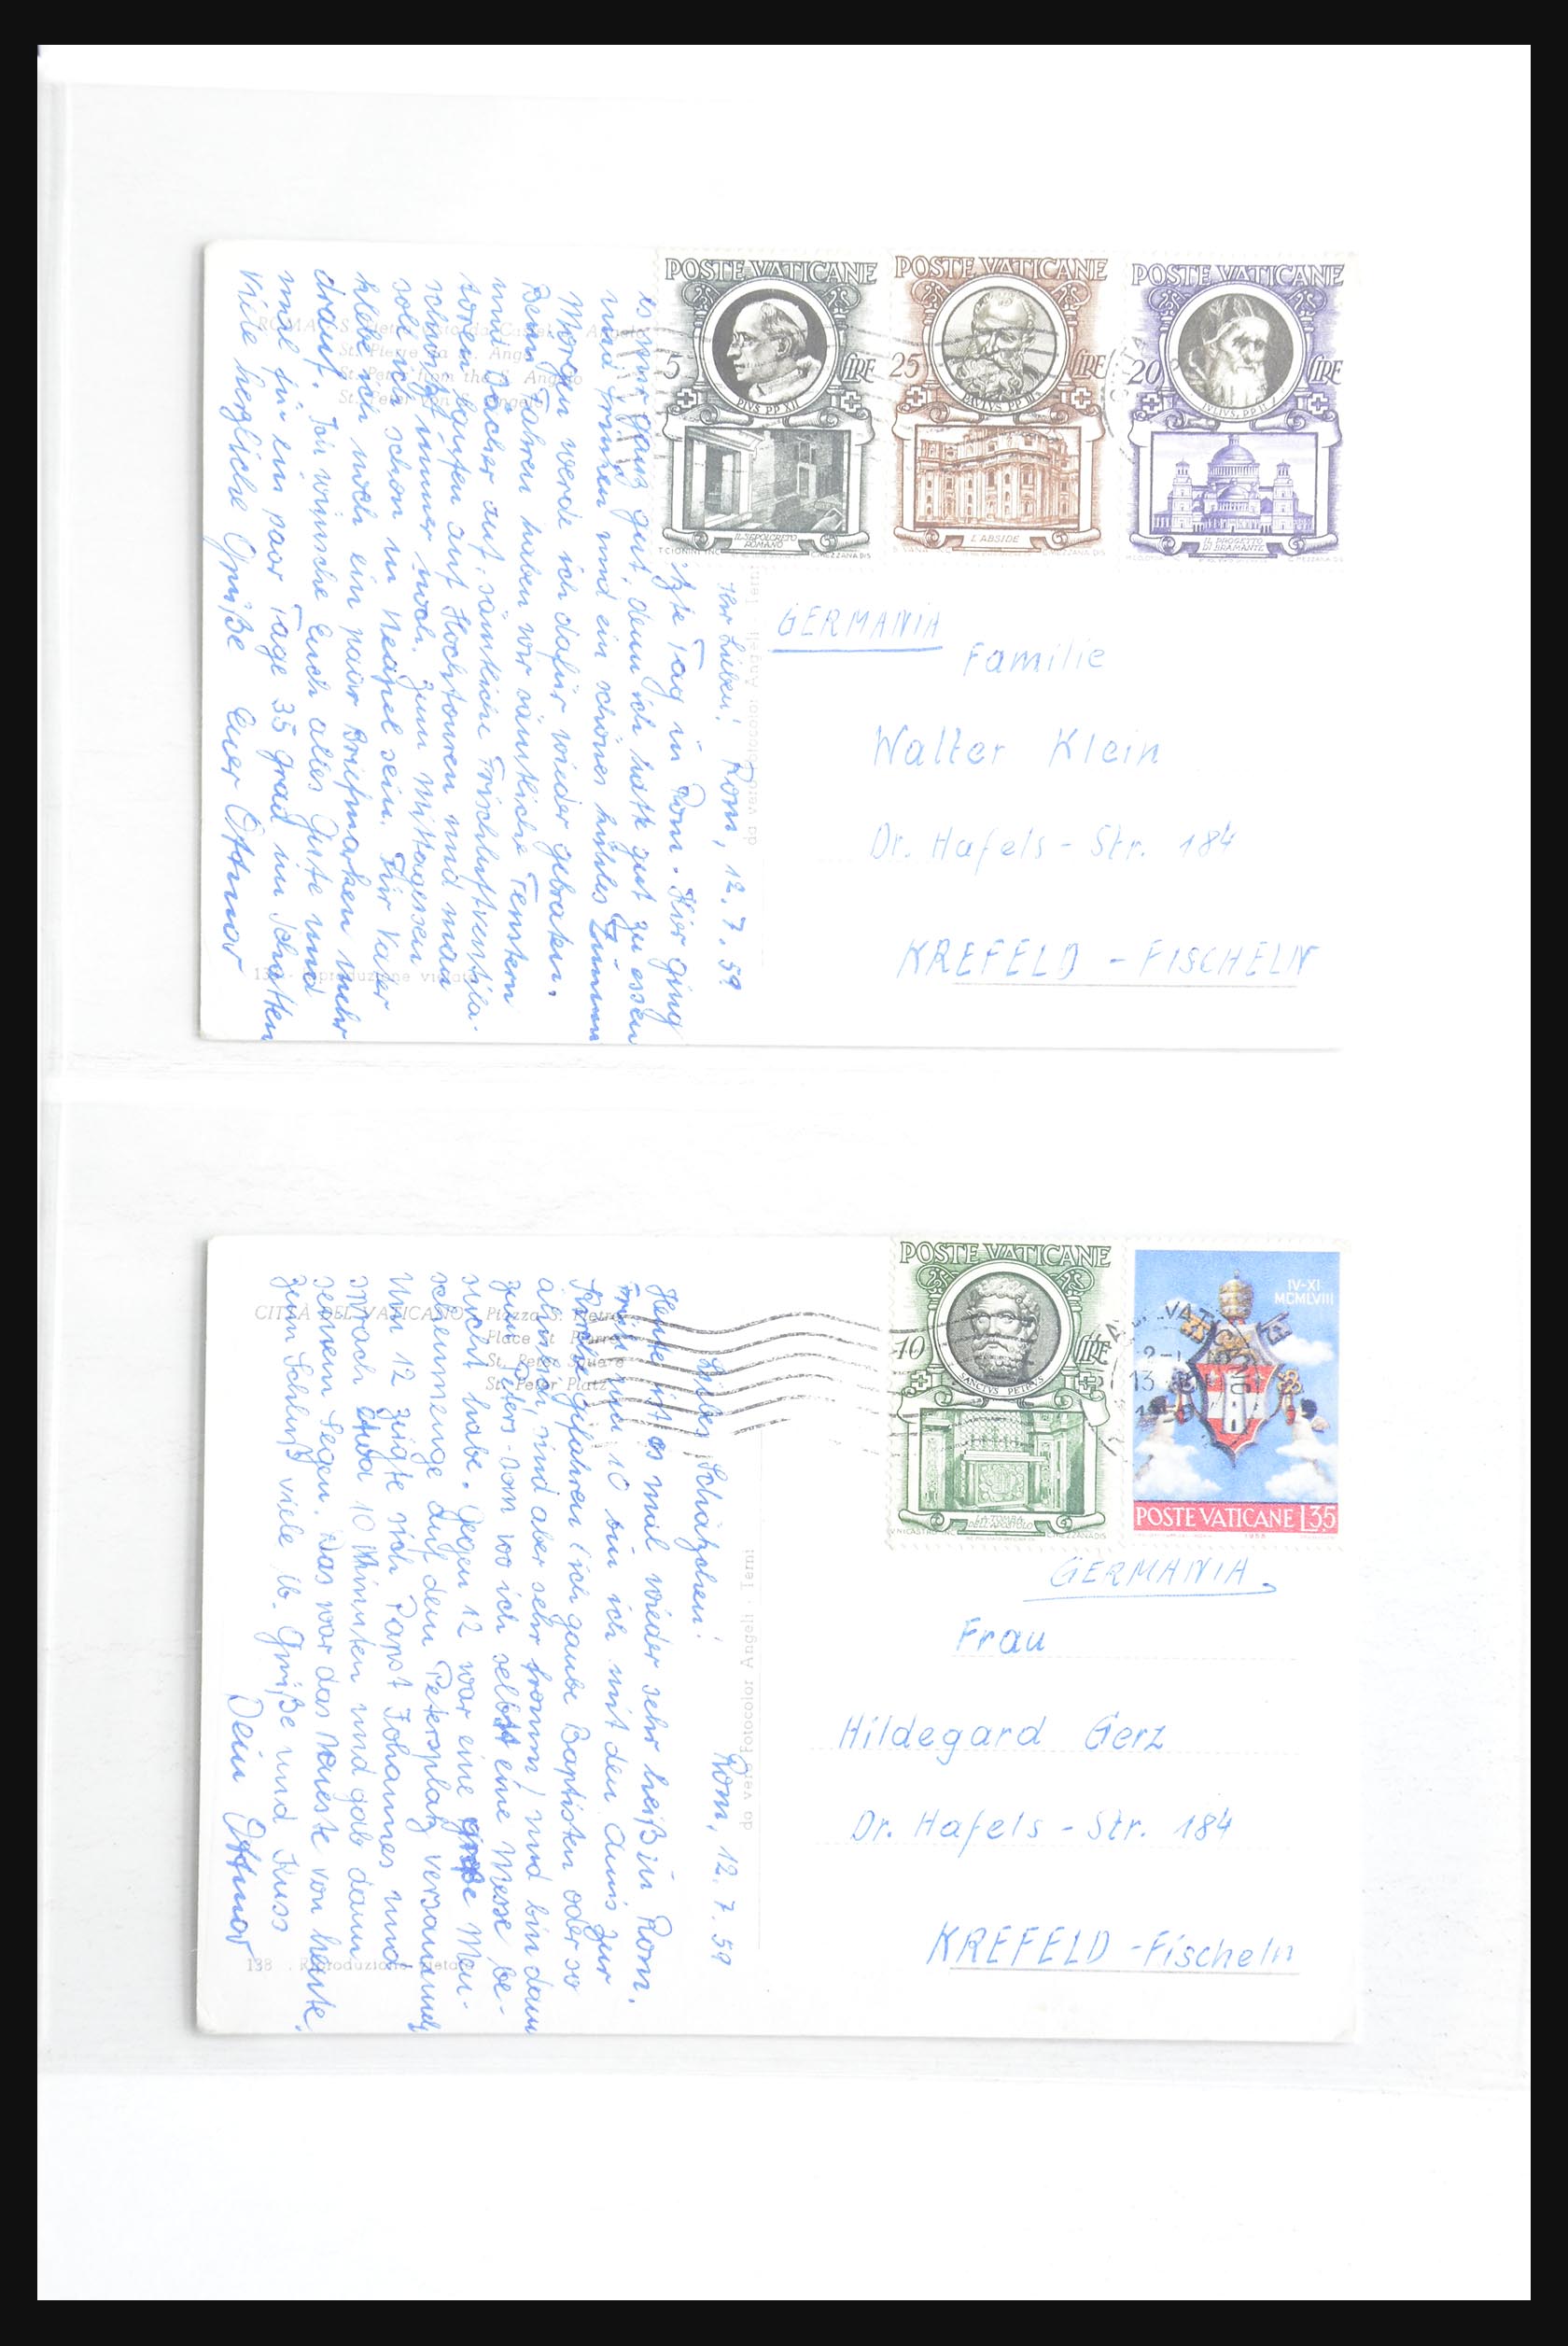 POSTE VATICANE
5 LIRE
PIVS PP XII
IL SEPOLCRETO
ROMANO
POSTE VATICANE
25 LIRE
PAVLVS PP III
L'ABSIDE
POSTE VATICANE
20 LIRE
IVLIVS PP II
IL PROGETTO
DI BRAMANTE
ROMA - S. Pietro
St. Pierre
St. Peter from the S. Angelo
St. Peter von S. Angelo
Ihr Lieben! Rom, 12.7.59
Tag in Rom. Hier ging
es mir ganz gut, denn ich hatte gut zu essen
und trinken und ein schönes kühles Zimmer
Morgen werde ich dafür wieder gebraten.
Beim Fahren haben wir sämtliche Fenstern
und Dächer auf, sämtliche Frischluftventila-
toren laufen auf Hochtouren und man
schwitzt immer noch. Zum Mittagessen
soll ich schon in Neapel sein. Für Vater
klebe ich noch ein paar Briefmarken mehr
drauf. Ich wünsche Euch alles Gute und
mal für ein paar Tage 35 Grad im Schatten
Viele herzliche Grüße Euer Ottmar
da vero Fotocolor Angeli - Terni
Riproduzione vietata
GERMANIA
Familie
Walter Klein
Dr. Hafels-Str. 184
KREFELD - FISCHELN
POSTE VATICANE
40 LIRE
SANCTVS PETRVS
LA TOMBA
DELL'APOSTOLO
IV-XI
MCMLVIII
POSTE VATICANE L35
1958
CITTÀ DEL VATICANO - Piazza S. Pietro
Place St. Pierre
St. Peter Square
St. Peter Platz
Rom, 12.7.59
Liebes Schätzchen!
Heute ist es mal wieder sehr heiß in Rom.
Früh um 10 bin ich mit den Amis zur
Kirche gefahren (ich gaube Baptisten oder so
ähnlich, sind aber sehr fromm) und bin dann
zum Peters-Dom wo ich selbst eine Messe be-
sucht habe. Gegen 12 war eine große Men-
schenmenge auf dem Petersplatz versammelt
Um 12 zeigte sich Papst Johannes und
sprach etwa 10 Minuten und gab dann
seinen Segen. Das war das Neueste von heute.
Zum Schluß viele lb. Grüße und Kuss
Dein Ottmar
da vero Fotocolor Angeli - Terni
138 - Riproduzione vietata
GERMANIA
Frau
Hildegard Gerz
Dr. Hafels-Str. 184
KREFELD-Fischeln